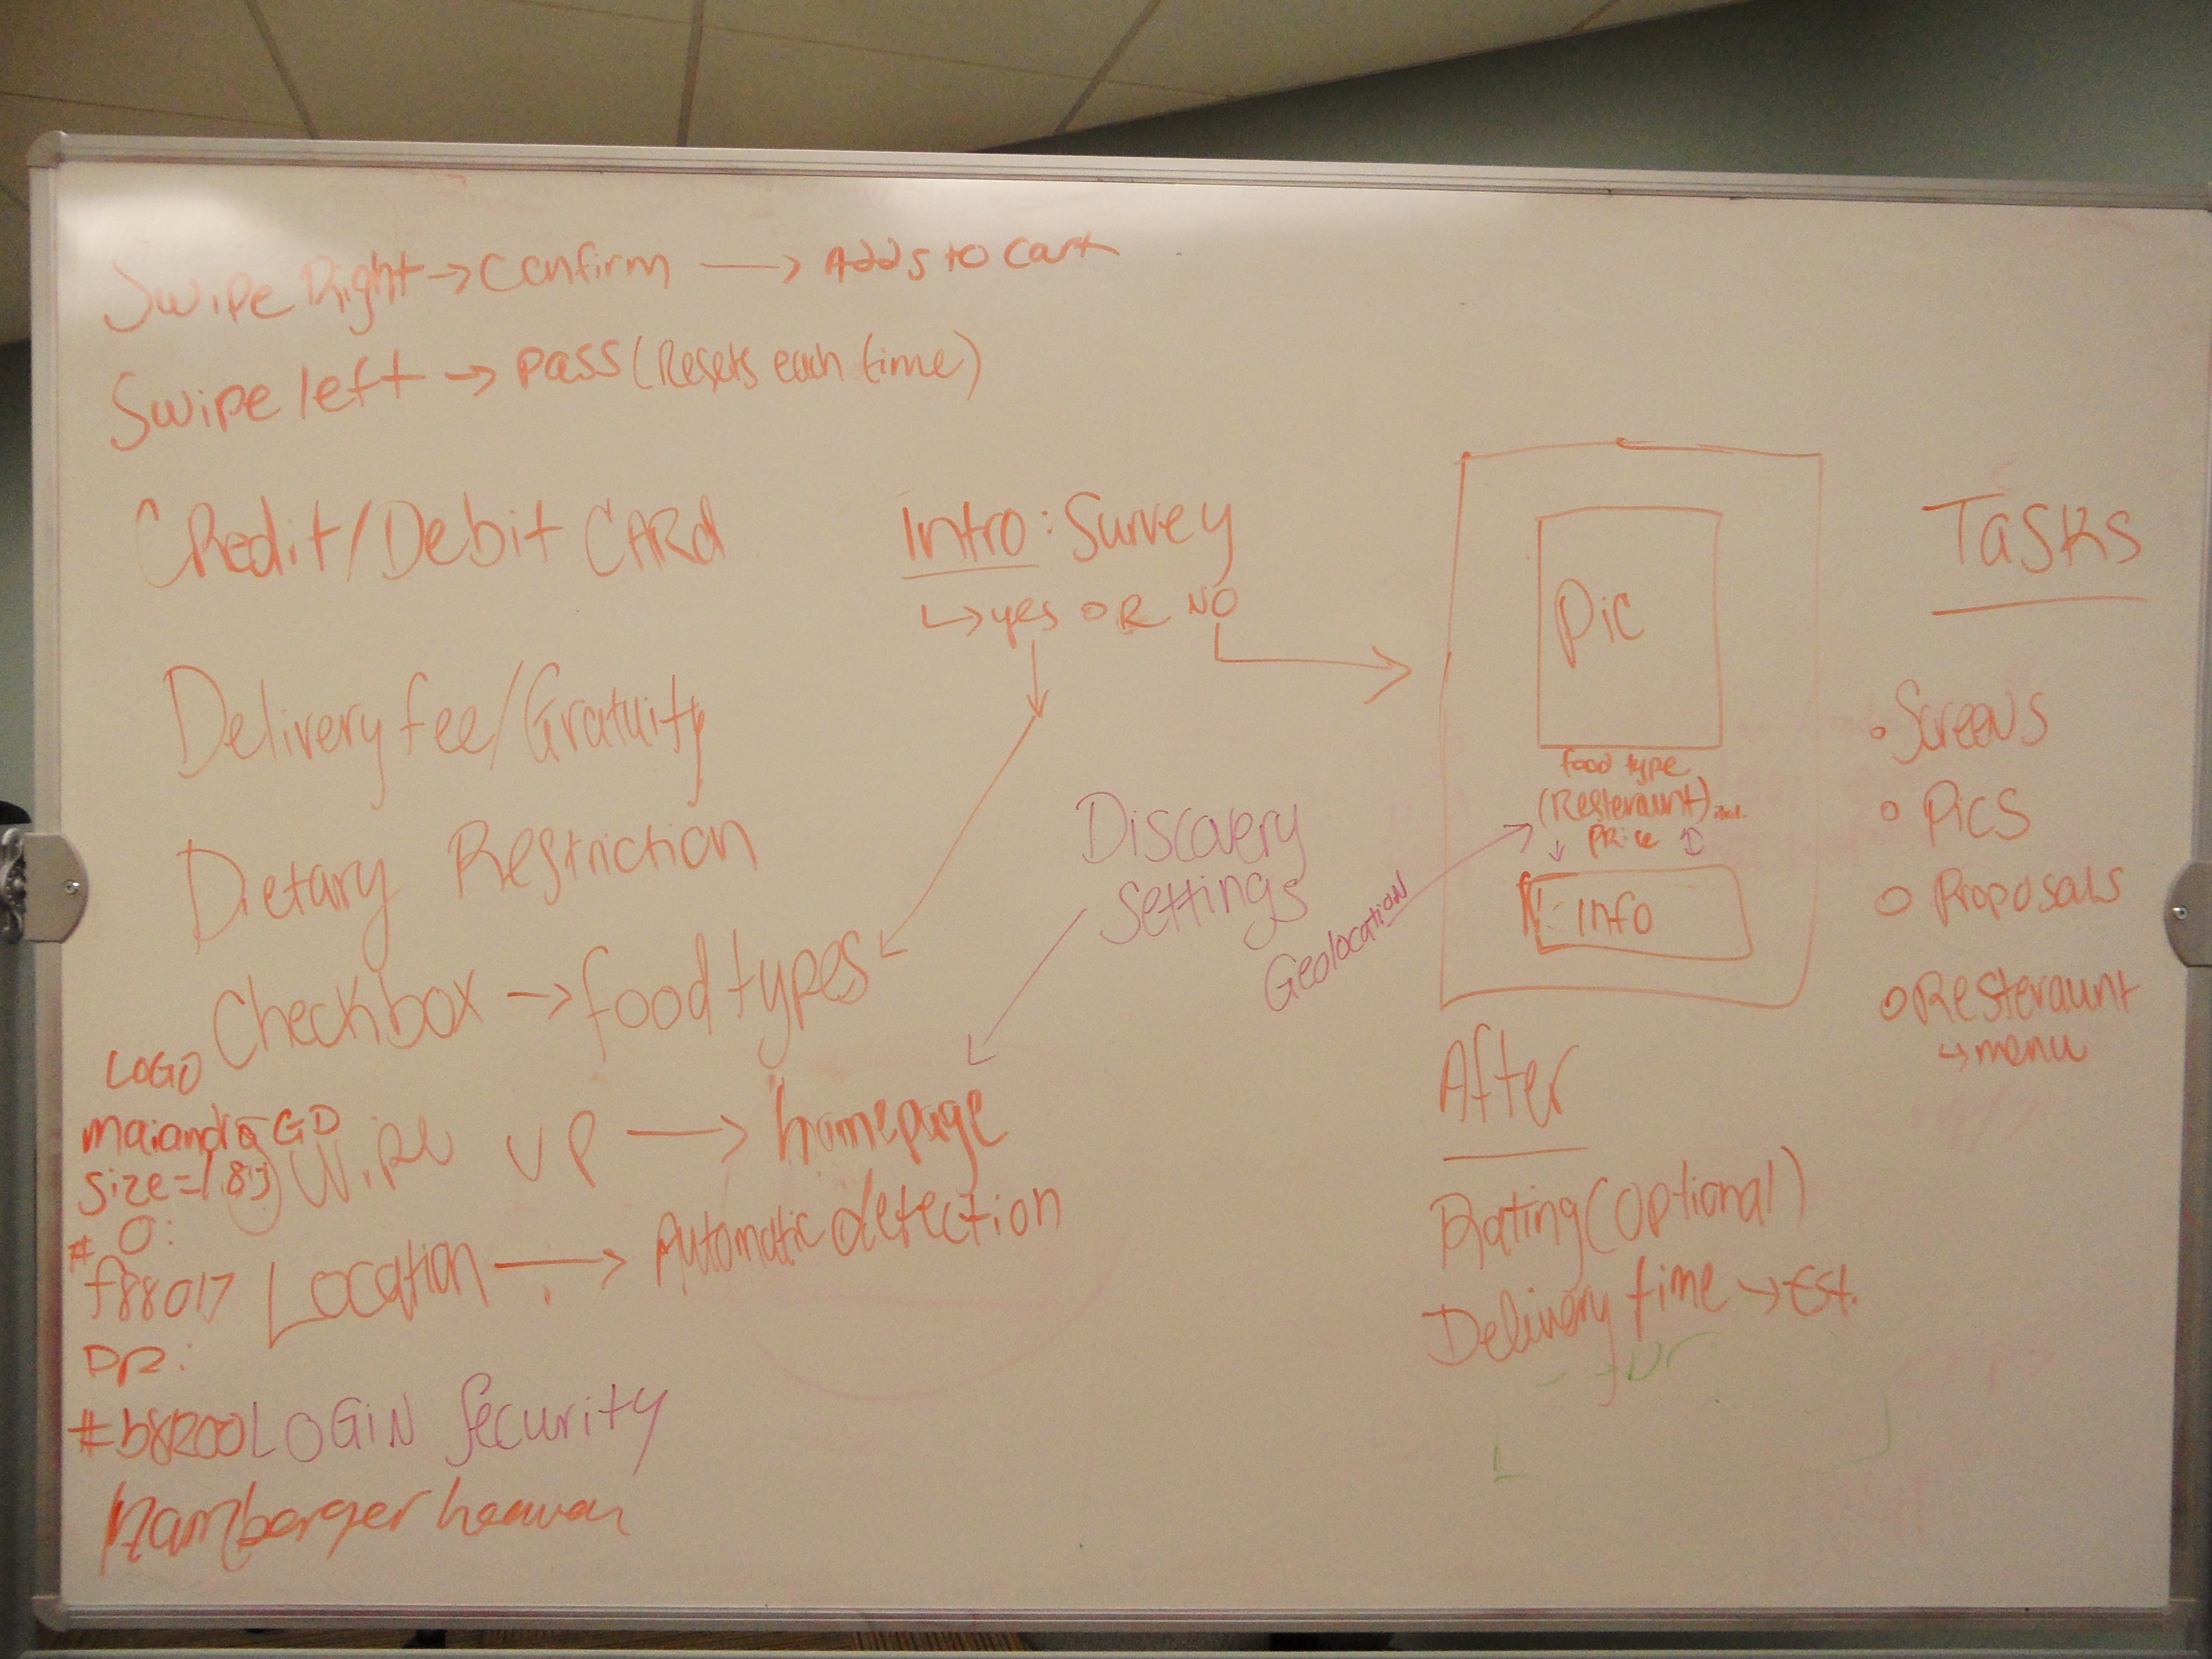 Swipe Right → Confirm → Adds to cart
Swipe left → pass (Resets each time)
Credit/Debit CARd
Delivery fee/Gratuity
Dietary Restriction
Checkbox → food types
Swipe up → homepage
Location → Automatic detection
LOGIN Security
Hamberger heaven
LOGO
maiandra GD
size=1.83
O:
#f88017
DR:
Intro: Survey
↳ yes OR NO
Discovery
Settings
Geolocation
Pic
food type
(Resteraunt)
Price
Info
After
Rating (Optional)
Delivery time → Est.
Tasks
• Screens
○ Pics
○ Proposals
○ Resteraunt
↳ menu